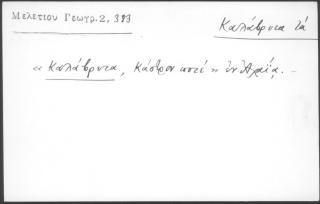 Μελετίου Γεωγρ.2, 393
Καλάβρυτα τά
« Καλάβρυτα, Κάστρον ποτέ » ἐν Ἀχαΐᾳ. –